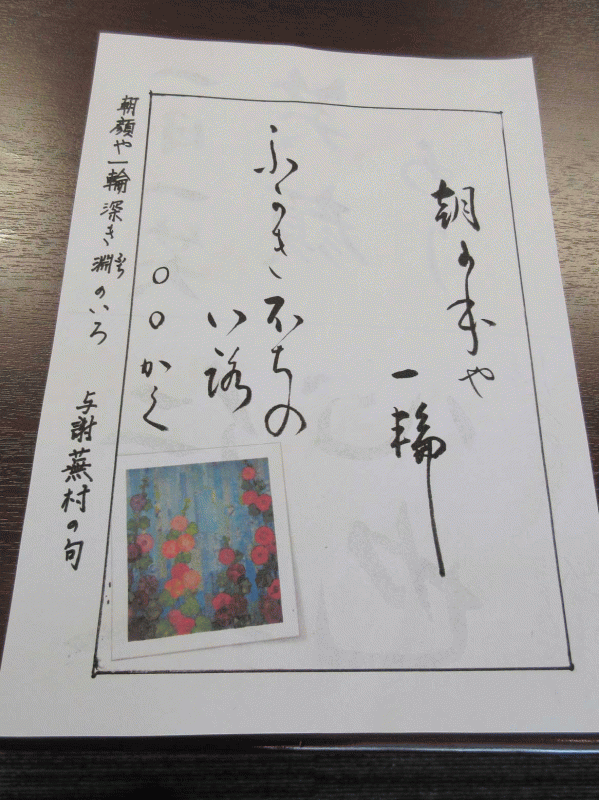 朝可本や
一輪
ふかき不ちの
い路
○○かく
朝顔や一輪深き淵のいろ
ふち
与謝蕪村の句